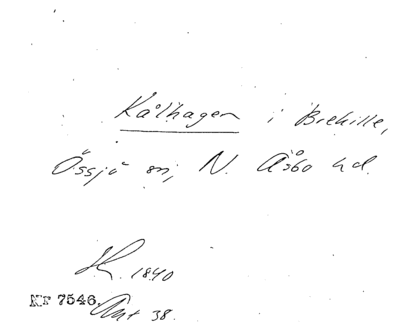 Kålhagen i Brehille,
Össjö sn, N. Åsbo hd.
Sk. 1840
NF 7546. Ant 38.